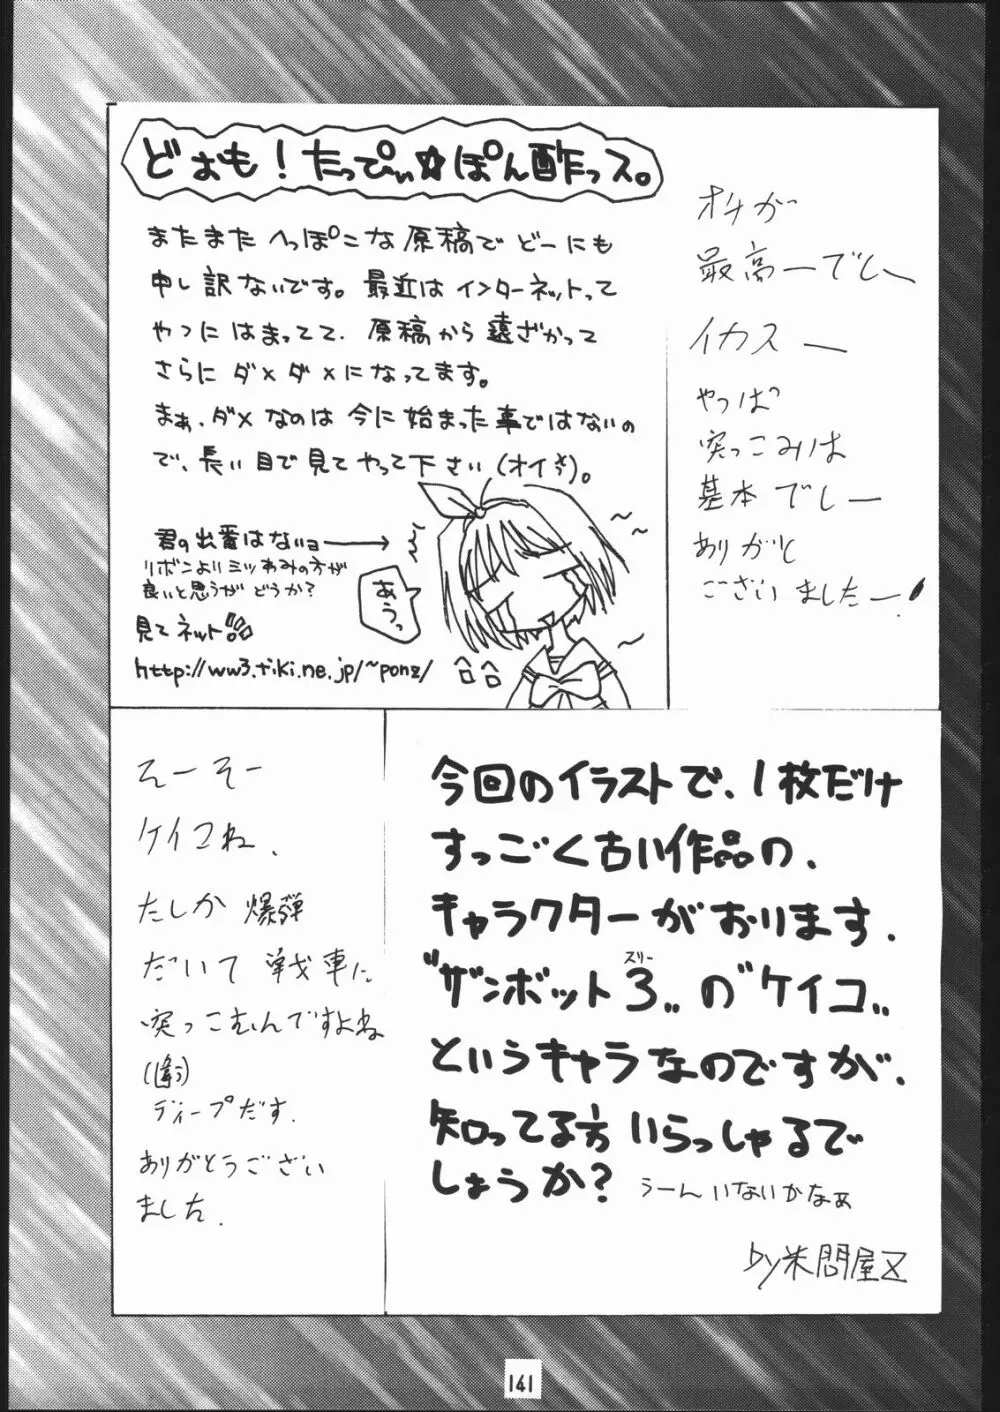 どぉも！たっぴぃ☆ぽん酢っス。
またまたへっぽこな原稿でどーにも
申し訳ないです。最近はインターネットって
やつにはまってて、原稿から遠ざかって
さらにダメダメになってます。
まぁ、ダメなのは今に始まった事ではないの
で、長い目で見てやって下さい(オイ
君の出番はないョ
リボンより三ツあみの方が
良いと思うが どうか?
あうっ
見てネット
http://ww3.tiki.ne.jp/~ponz/
オチが
最高ーでしー
イカスー
やっぱっ
突っこみは
基本でしー
ありがと
ございましたー!
えーそー
ケイコね、
たしか 爆弾
だいて 戦車に
突っこむんですよね
(違う)
ディープだす.
ありがとうござい
ました.
今回のイラストで、1枚だけ
すっごく古い作品の、
キャラクターがおります.
"ザンボット3スリー"の"ケイコ"
というキャラなのですが、
知ってる方 いらっしゃるで
しょうか? うーん いないかなぁ
by米問屋Z
141